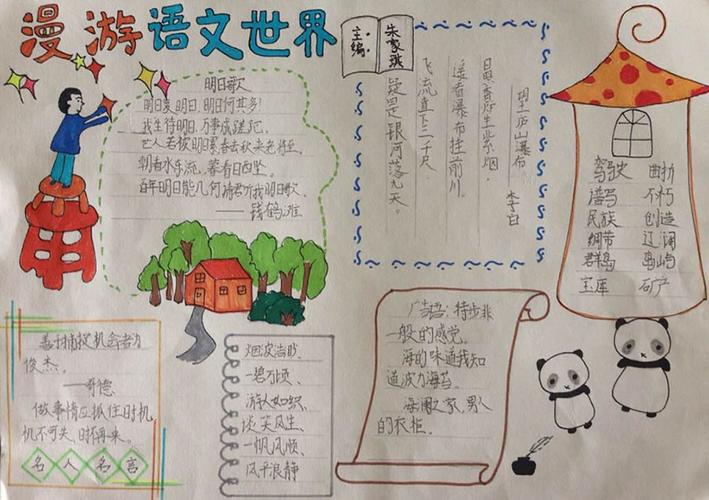 漫游语文世界
主编
朱家琪
明日歌
明日复明日,明日何其多!
我生待明日,万事成蹉跎。
世人若被明日累,春去秋来老将至。
朝看水东流,暮看日西坠。
百年明日能几何,请君听我明日歌。
——钱鹤滩
望庐山瀑布
李白
日照香炉生紫烟,
遥看瀑布挂前川。
飞流直下三千尺,
疑是银河落九天。
驾驶 曲折
谱写 不朽
民族 创造
绸带 辽阔
群岛 岛屿
宝库 矿产
善于捕捉机会者为
俊杰。
——哥德
做事情应抓住时机
机不可失,时不再来。
名人名言
烟波浩渺、
一碧万顷、
游人如织、
谈笑风生、
一帆风顺、
风平浪静
广告语:特步非
一般的感觉。
海的味道我知
道波力海苔。
海澜之家,男人
的衣柜。